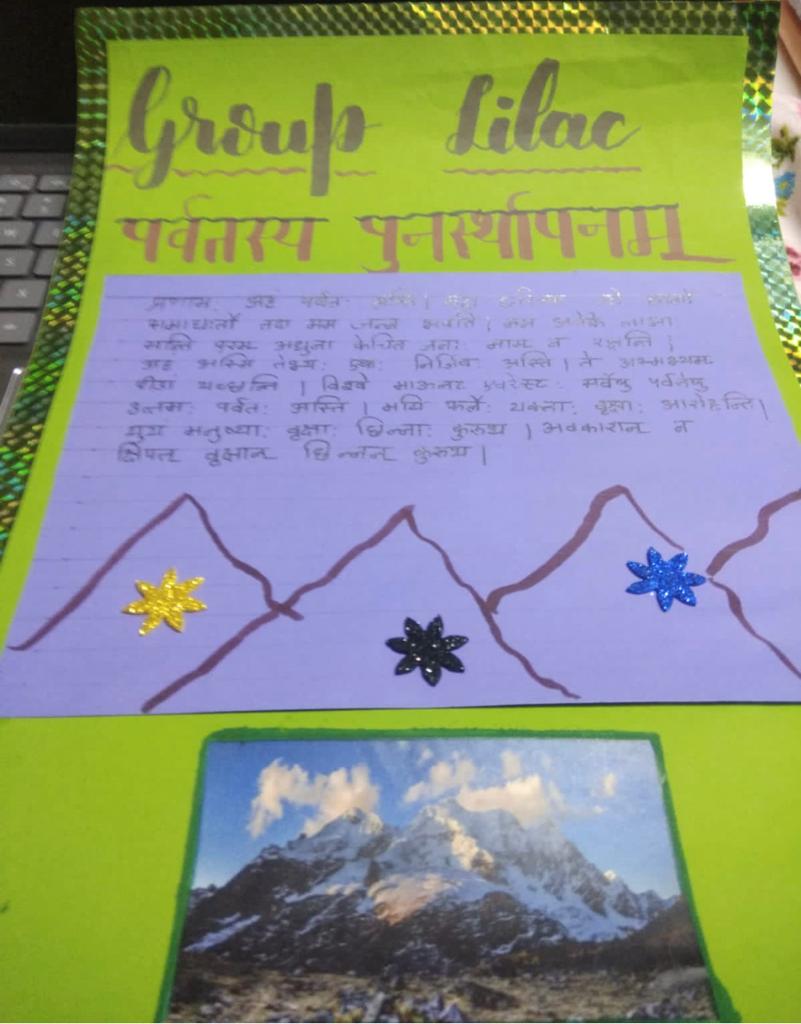 Group Lilac
पर्वतस्य पुनर्स्थापनम्
प्रणाम, अह पर्वतः अस्मि |
समाधातौ तदा मम जन्म भवति | मम अनेके लाभाः
सन्ति परम अधुना केचित जनाः मास न रक्षन्ति |
अह अस्मि तेभ्यः एकः निर्जिवः अस्ति | ते
पीडा यच्छन्ति | विश्वे माऊन्ट एवरेस्टः सर्वेषु पर्वतेषु
उत्तमः पर्वतः अस्ति | मयि फलैः यक्ताः वृक्षाः आरोहन्ति |
यूय मनुष्याः वृक्षाः छिन्नाः कुरुथ | अवकारान् न
क्षिपतु वृक्षान् छिन्नन् कुरुथ |